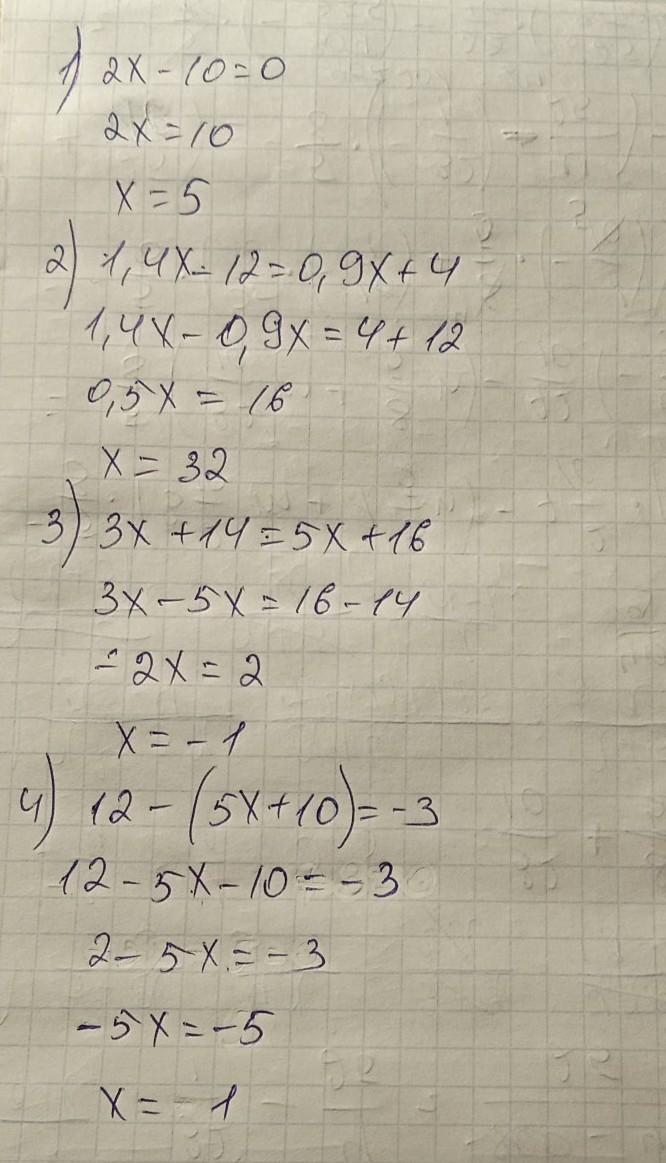 1) 2x - 10 = 0
2x = 10
x = 5
2) 1,4x - 12 = 0,9x + 4
1,4x - 0,9x = 4 + 12
0,5x = 16
x = 32
3) 3x + 14 = 5x + 16
3x - 5x = 16 - 14
- 2x = 2
x = - 1
4) 12 - (5x + 10) = -3
12 - 5x - 10 = - 3
2 - 5x = - 3
- 5x = - 5
x = 1